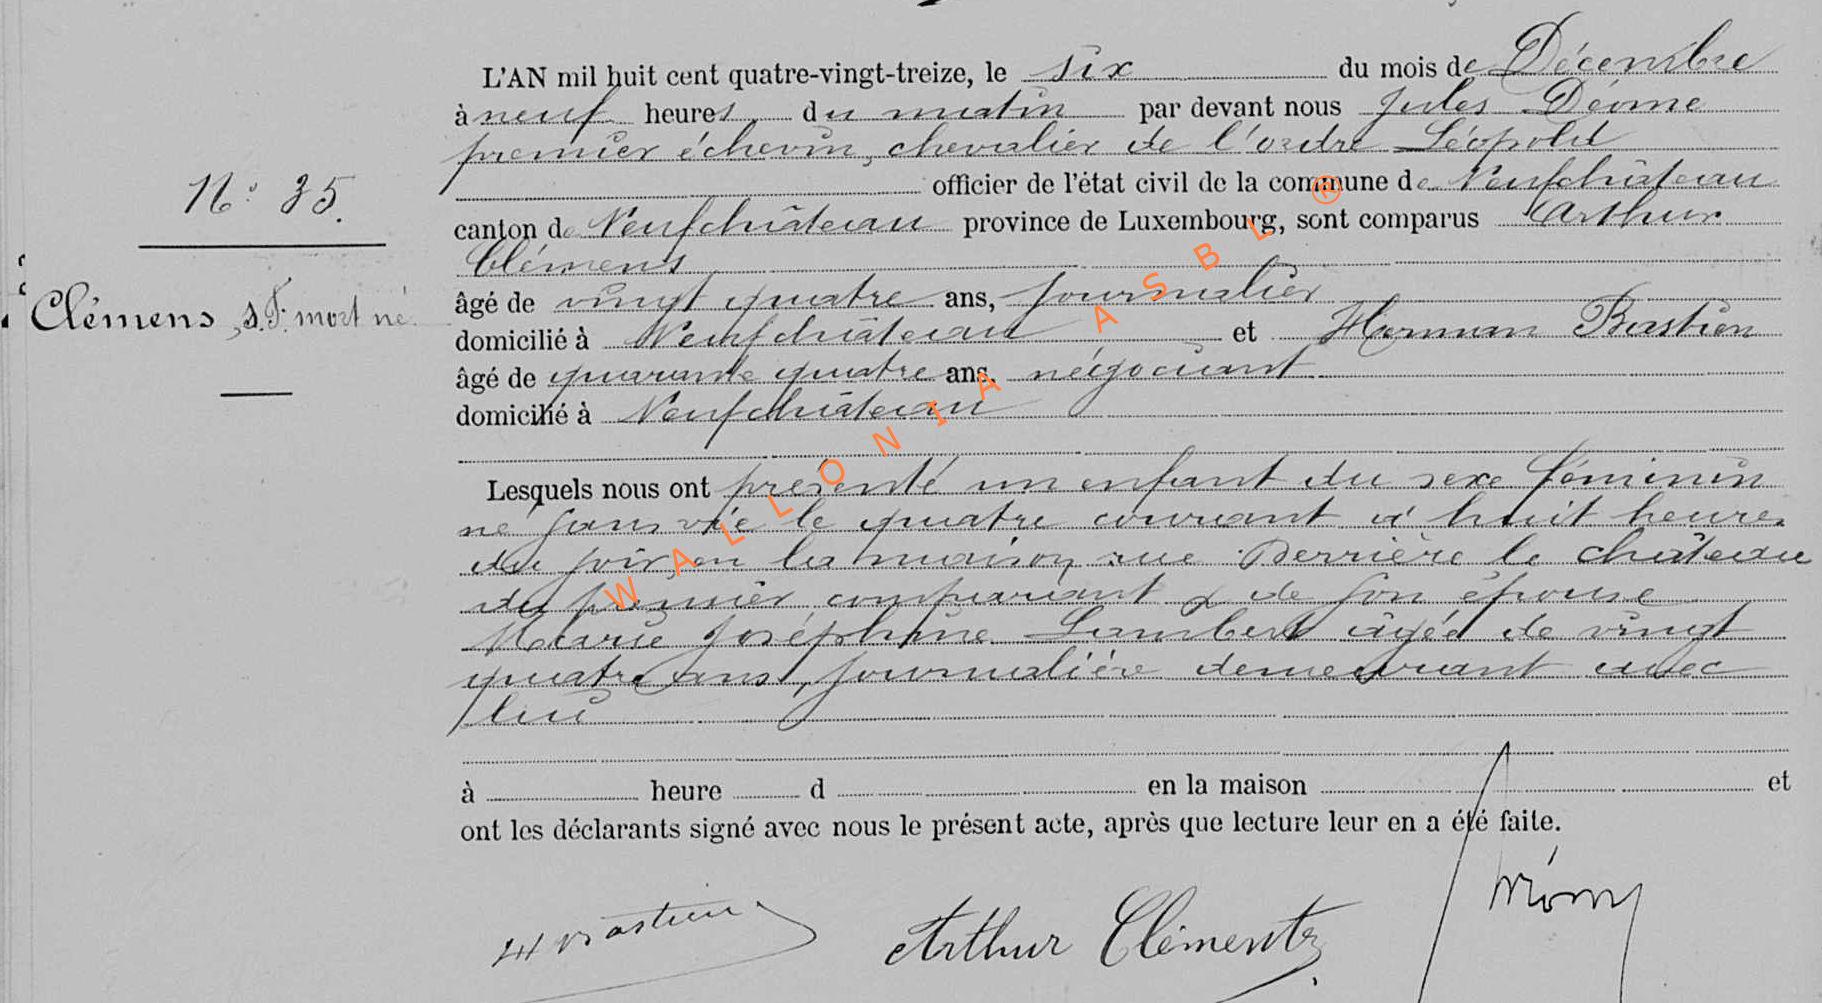 L'AN mil huit cent quatre-vingt-treize, le six du mois de Décembre
à neuf heures du matin par devant nous Jules
premier échevin, chevalier de l'ordre Léopold
officier de l'état civil de la commune de Neufchâteau
N° 35.
canton de Neufchâteau province de Luxembourg, sont comparus Arthur
Clémens
âgé de vingt quatre ans, journalier
Clémens, s. P. mort né.
domicilié à Neufchâteau et Herman Bastien
âgé de quarante quatre ans, négociant
domicilié à Neufchâteau
Lesquels nous ont présenté un enfant du sexe féminin
né sans vie le quatre courant à huit heures
du soir, en la maison, rue Derrière le château
du premier comparant & de son épouse
Marie Joséphine Lambert âgée de vingt
quatre ans, journalière demeurant avec
lui
à heure d en la maison et
ont les déclarants signé avec nous le présent acte, après que lecture leur en a été faite.
H Bastien Arthur Clémentz
WALLONIA ASBL ®